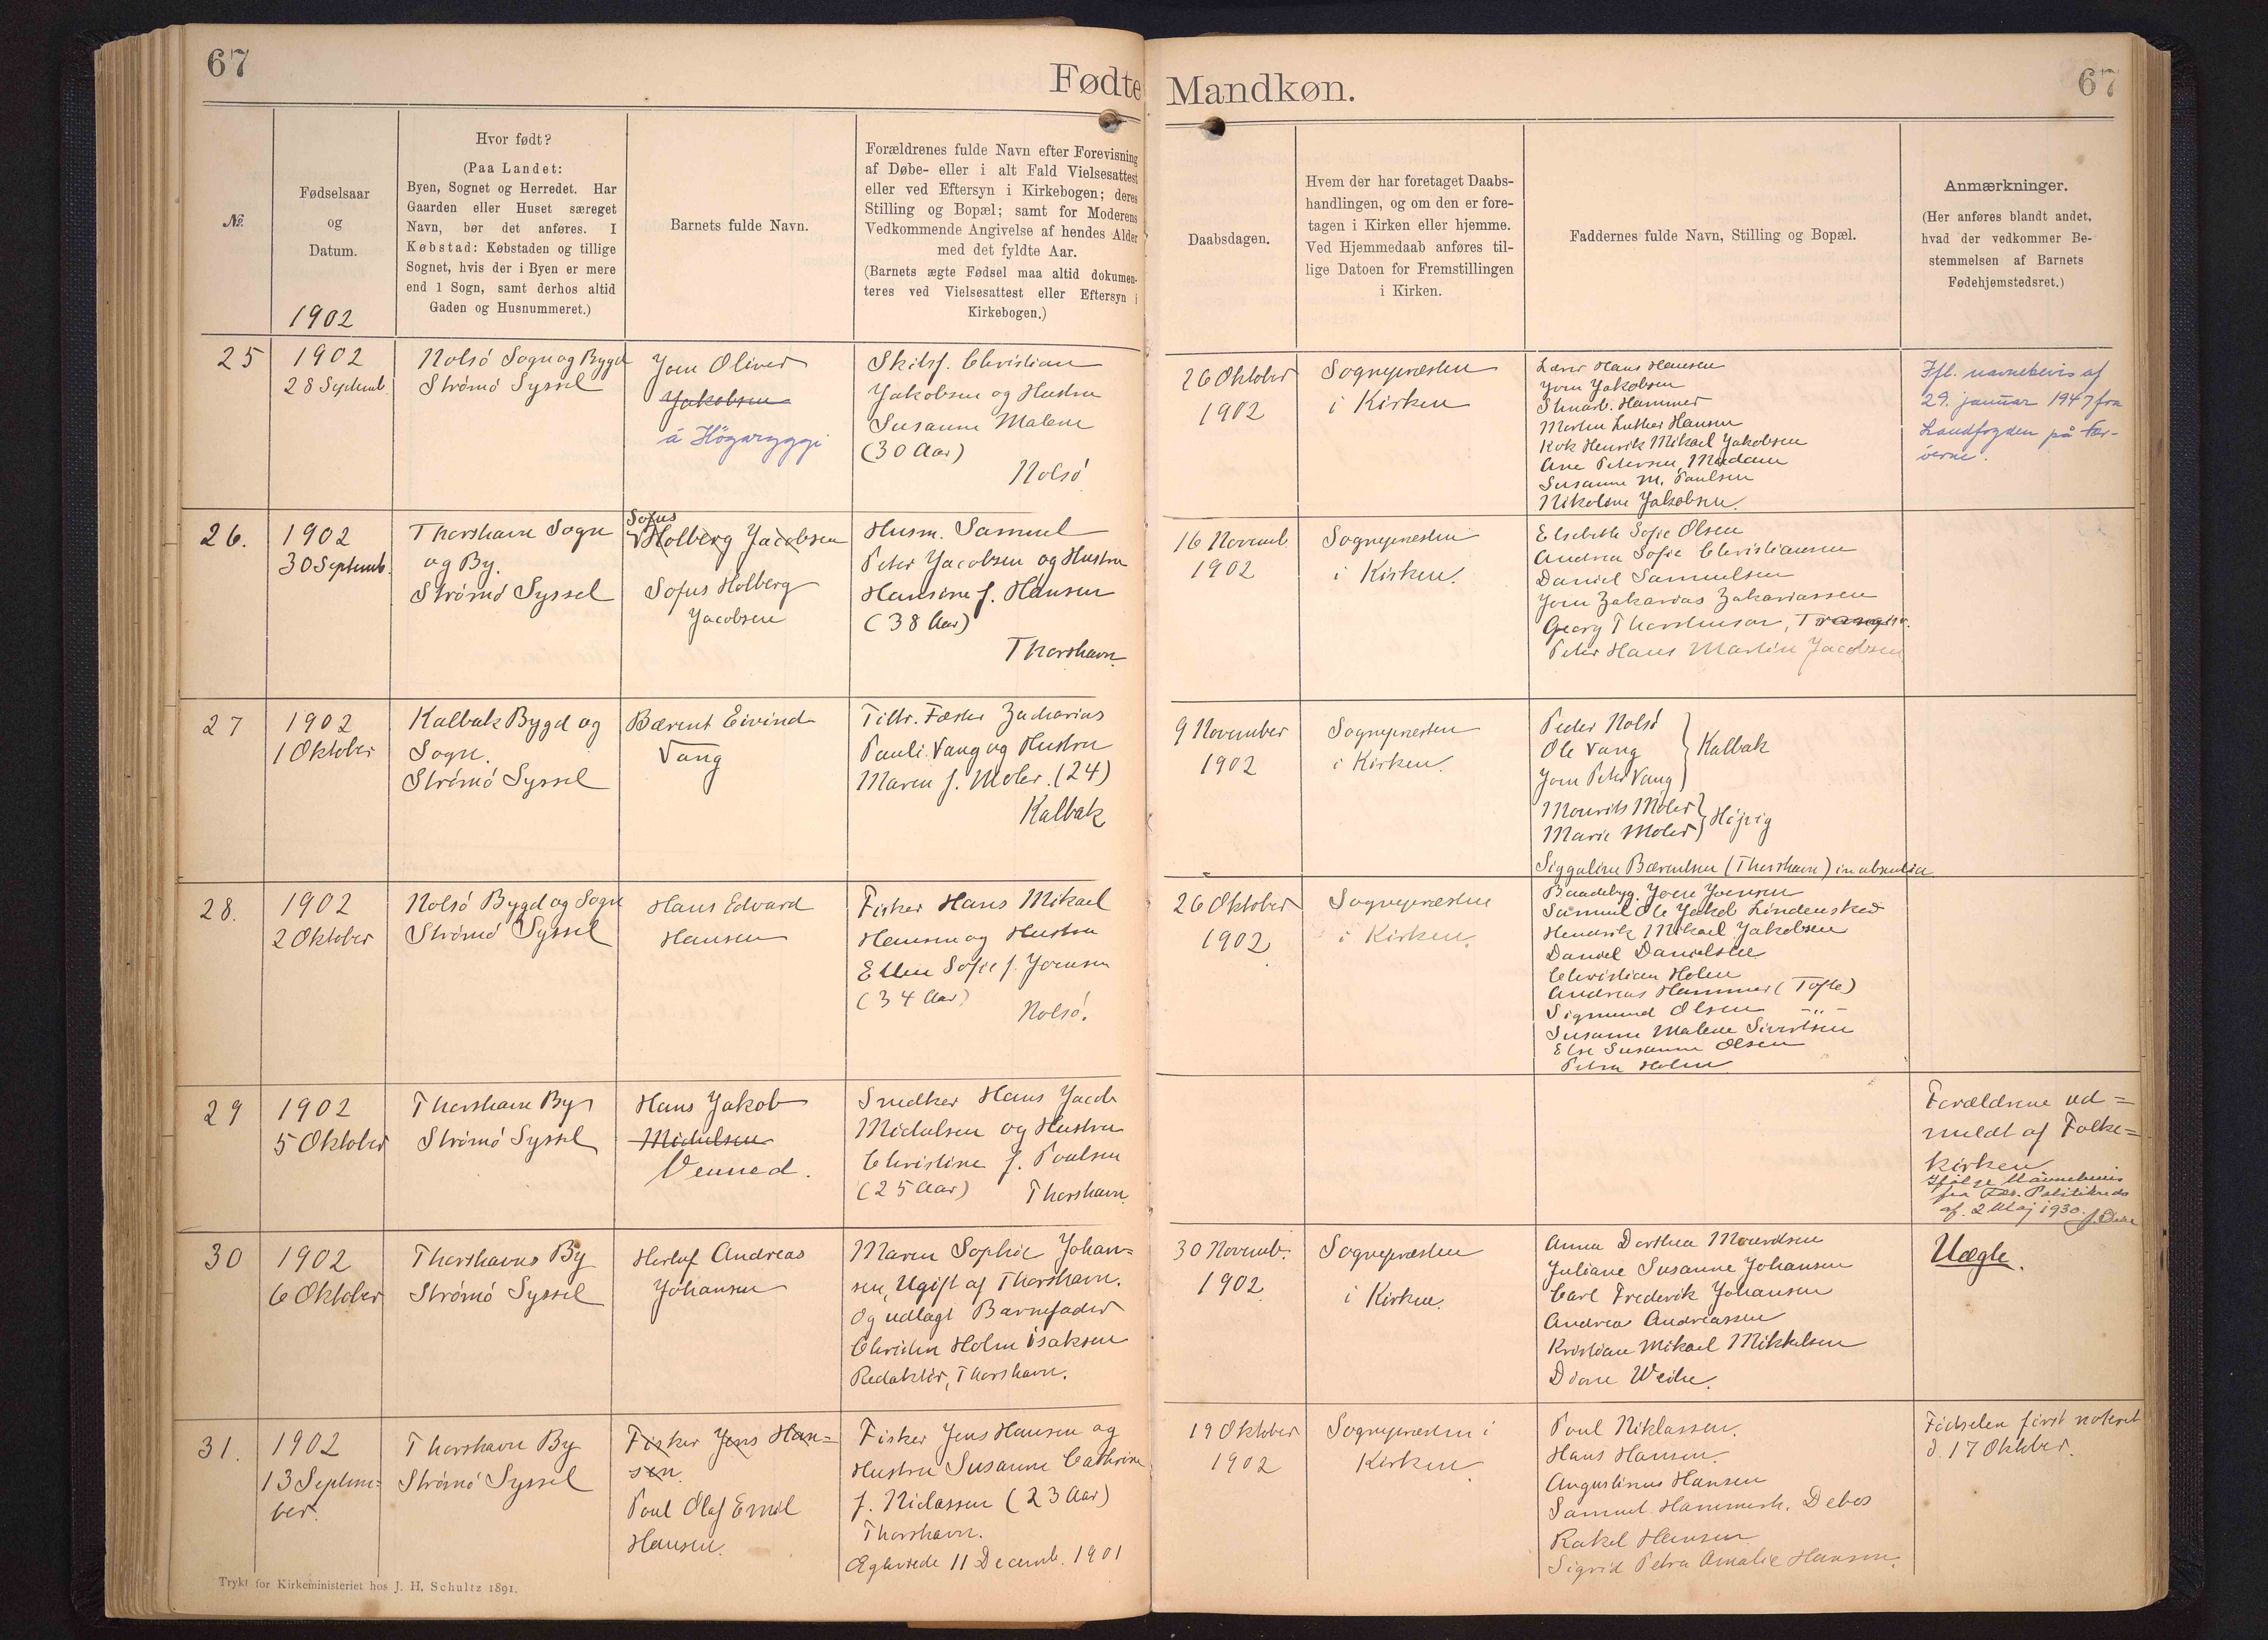 67
Fødte
Mandkøn.
67
№
Fødselsaar
og
Datum.
1902
Hvor født?
(Paa Landet:
Byen, Sognet og Herredet. Har
Gaarden eller Huset særeget
Navn, bør det anføres. I
Købstad: Købstaden og tillige
Sognet, hvis der i Byen er mere
end 1 Sogn, samt derhos altid
Gaden og Husnummeret.)
Barnets fulde Navn.
Forældrenes fulde Navn efter Forevisning
af Døbe- eller i alt Fald Vielsesattest
eller ved Eftersyn i Kirkebogen; deres
Stilling og Bopæl; samt for Moderens
Vedkommende Angivelse af hendes Alder
med det fyldte Aar.
(Barnets ægte Fødsel maa altid dokumen-
teres ved Vielsesattest eller Eftersyn i
Kirkebogen.)
Daabsdagen.
Hvem der har foretaget Daabs-
handlingen, og om den er fore-
tagen i Kirken eller hjemme.
Ved Hjemmedaab anføres til-
lige Datoen for Fremstillingen
i Kirken.
Faddernes fulde Navn, Stilling og Bopæl.
Anmærkninger.
(Her anføres blandt andet,
hvad der vedkommer Be-
stemmelsen af Barnets
Fødehjemstedsret.)
25
1902
28 Septemb.
Nolsö Sogn og Bygd
Strömö Syssel
Joen Oliver
Jakobsen
á Högaryggi
Skibsf. Christian
Jakobsen og Hustru
Susanne Malene
(30 Aar)
Nolsö
26 Oktober
1902
Sognepræsten
i Kirken
Lærer Hans Hansen
Joen Jakobsen
Hammer
Morten Luther Hansen
Kok Henrik Mikael Jakobsen
Ane Petersen, Madam
Susanne M. Paulsen
Nikoline Jakobsen
Ifl. navnebevis af
29. januar 1947 fra
Landfogden på Fær-
öerne.
26.
1902
30 Septemb.
Thorshavn Sogn
og By.
Strömö Syssel
Sofus
Holberg Jacobsen
Sofus Holberg
Jacobsen
Husm. Samuel
Peter Jacobsen og Hustru
Hansine f. Hansen
(38 Aar)
Thorshavn
16 Novemb.
1902
Sognepræsten
i Kirken.
Elsebeth Sofie Olsen
Andrea Sofie Christiansen
Daniel Samuelsen
Joen Zakarias Zakariassen
Georg Thorsteinson,
Peter Hans Martin Jacobsen
27
1902
1 Oktober
Kalbak Bygd og
Sogn.
Strömö Syssel
Bærent Eivind
Vang
Tilltr. Fæster Zacharias
Pauli Vang og Hustru
Maren f. Mohr. (24)
Kalbak
9 November
1902
Sognepræsten
i Kirken.
Peder Nolsö
Ole Vang
Joen Peter Vang
Kalbak
Mourits Mohr
Marie Mohr
Höjvig
Siggaline Bærentsen (Thorshavn) in absentia
28.
1902
2 Oktober
Nolsö Bygd og Sogn
Strömö Syssel
Hans Edvard
Hansen
Fisker Hans Mikael
Hansen og Hustru
Ellen Sofie f. Joensen
(34 Aar)
Nolsö.
26 Oktober
1902
Sognepræsten
i Kirken.
Baadebyg. Joen Joensen
Samuel Ole Jakob Lindenskov
Henrik Mikael Jakobsen
Daniel Danielsen
Christian Holm
Andreas Hammer (Tofte)
Sigmund Olsen -„-
Susanne Malene Sivertsen
Else Susanne Olsen
Petra Holm
29
1902
5 Oktober
Thorshavn By
Strömö Syssel
Hans Jakob
Michelsen
Venned.
Snedker Hans Jacob
Michelsen og Hustru
Christine f. Poulsen
(25 Aar) Thorshavn
Forældrene ud=
meldt af Folke=
kirken
Ifölge Navnebevis
fra Fær. Politikreds
af. 2 Maj 1930.
30
1902
6 Oktober
Thorshavns By
Strömö Syssel
Herluf Andreas
Johansen
Maren Sophie Johan=
sen, Ugift af Thorshavn.
Og udlagt Barnefader
Christen Holm Isaksen
Redaktör, Thorshavn.
30 Novemb.
1902
Sognepræsten
i Kirken.
Anna Dorthea Mouridsen
Juliane Susanne Johansen
Carl Frederik Johansen
Andrea Andreassen
Kristiane Mikael Mikkelsen
Diane Weihe.
Uægte.
31.
1902
13 Septem=
ber.
Thorshavn By
Strömö Syssel
Fisker Jens Han=
sen.
Poul Olaf Emil
Hansen.
Fisker Jens Hansen og
Hustru Susanne Cathrine
f. Niclassen (23 Aar)
Thorshavn.
Ægteviede 11 Decemb. 1901
19 Oktober
1902
Sognepræsten i
Kirken
Poul Niklassen.
Hans Hansen.
Augustinus Hansen
Samuel Hammersh. Debes
Rakel Hansen
Sigrid Petra Amalie Hansen.
Födselen först noteret
d. 17 Oktober.
Trykt for Kirkeministeriet hos J. H. Schultz 1891.